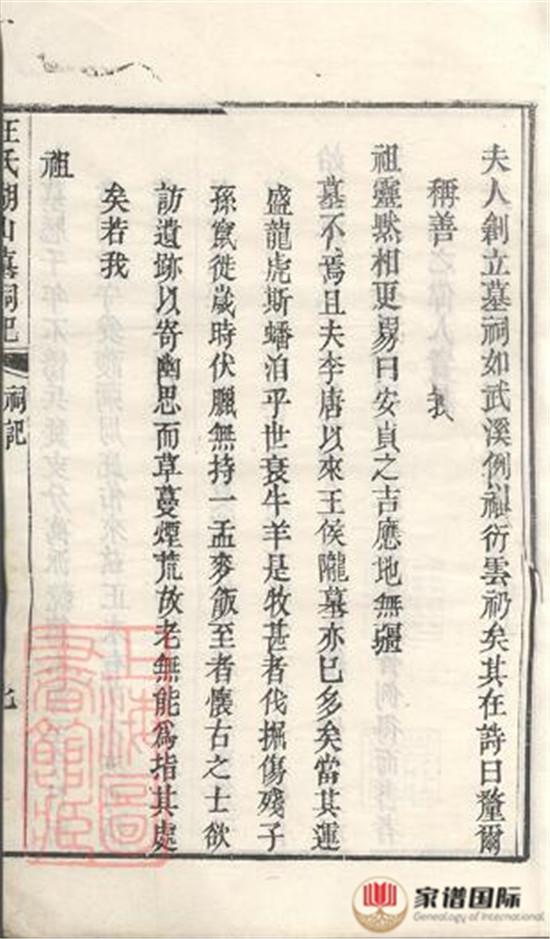 夫人創立墓祠如武溪例祖衍雲礽矣其在詩曰釐爾
稱善我
祖靈默相更易曰安貞之吉應地無疆
墓不焉且夫李唐以來王侯隴墓亦已多矣當其運
盛龍虎斯蟠洎乎世衰牛羊是牧甚者伐掘傷殘子
孫竄徙歲時伏臘無持一盂麥飯至者懷古之士欲
訪遺跡以寄幽思而草蔓煙荒故老無能為指其處
矣若我
祖
汪氏湖山墓祠記
祠記
七
上海圖書館藏
家谱国际
Genealogy of International